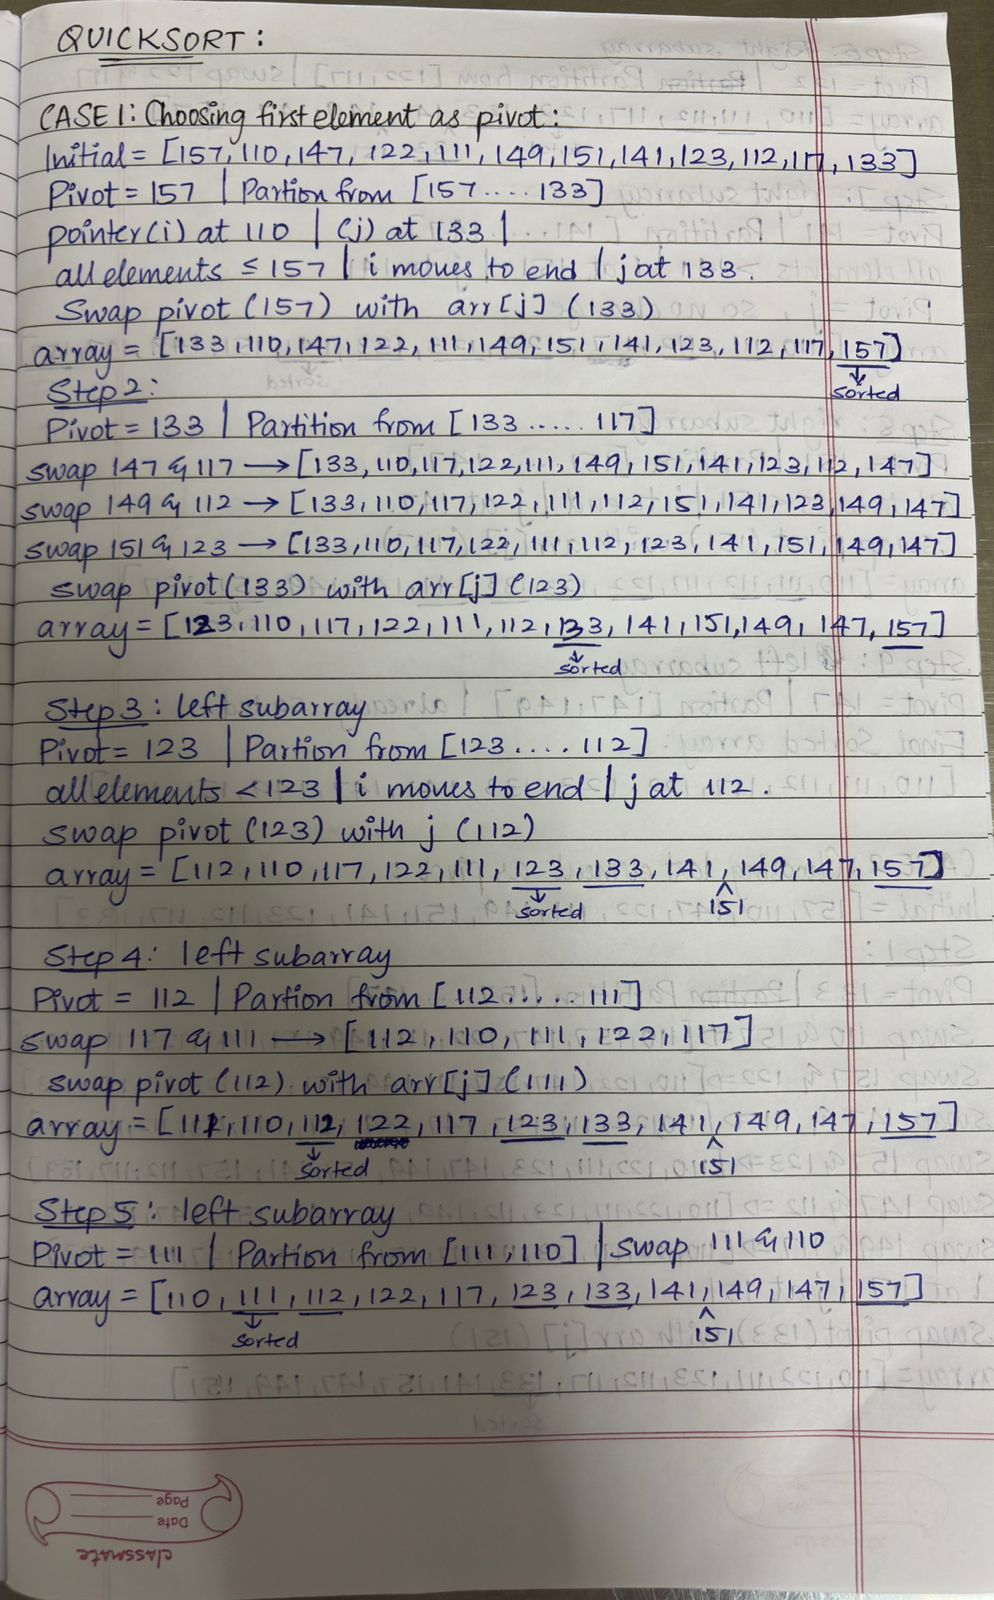 QUICKSORT:
CASE 1: Choosing first element as pivot:
Initial = [157, 110, 147, 122, 111, 149, 151, 141, 123, 112, 117, 133]
Pivot = 157 | Partion from [157 .... 133]
pointer (i) at 110 | (j) at 133 |
all elements ≤ 157 | i moves to end | j at 133.
Swap pivot (157) with arr[j] (133)
array = [133, 110, 147, 122, 111, 149, 151, 141, 123, 112, 117, 157]
sorted
Step 2:
Pivot = 133 | Partition from [133 ..... 117]
swap 147 & 117 → [133, 110, 117, 122, 111, 149, 151, 141, 123, 112, 147]
swap 149 & 112 → [133, 110, 117, 122, 111, 112, 151, 141, 123, 149, 147]
swap 151 & 123 → [133, 110, 117, 122, 111, 112, 123, 141, 151, 149, 147]
swap pivot (133) with arr[j] (123)
array = [123, 110, 117, 122, 111, 112, 133, 141, 151, 149, 147, 157]
sorted
Step 3: left subarray
Pivot = 123 | Partion from [123 .... 112]
all elements < 123 | i moves to end | j at 112.
swap pivot (123) with j (112)
array = [112, 110, 117, 122, 111, 123, 133, 141, 149, 147, 157]
sorted ^151
Step 4: left subarray
Pivot = 112 | Partion from [112 .... 111]
swap 117 & 111 → [112, 110, 111, 122, 117]
swap pivot (112) with arr[j] (111)
array = [111, 110, 112, 122, 117, 123, 133, 141, 149, 147, 157]
sorted ^151
Step 5: left subarray
Pivot = 111 | Partion from [111, 110] | swap 111 & 110
array = [110, 111, 112, 122, 117, 123, 133, 141, 149, 147, 157]
sorted ^151
Page
Date
classmate